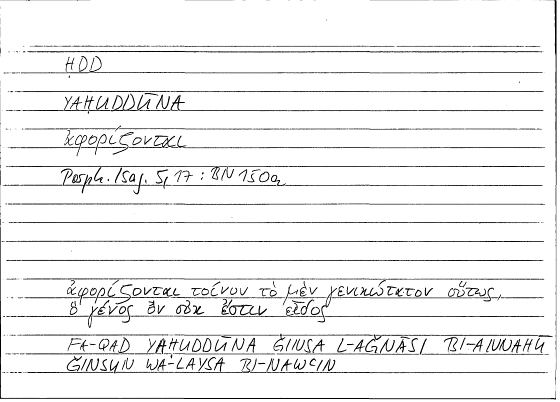 ḤDD
YAḤUDDŪNA
ἀφορίζονται
Porph. Isag. 5, 17 : BN 150a
ἀφορίζονται τοίνυν τὸ μὲν γενικώτατον οὕτως,
ὃ γένος ὂν οὐκ ἔστιν εἶδος
FA-QAD YAḤUDDŪNA ǦINSA L-AǦNĀSI BI-ANNAHŪ
ǦINSUN WA-LAYSA BI-NAWʿIN